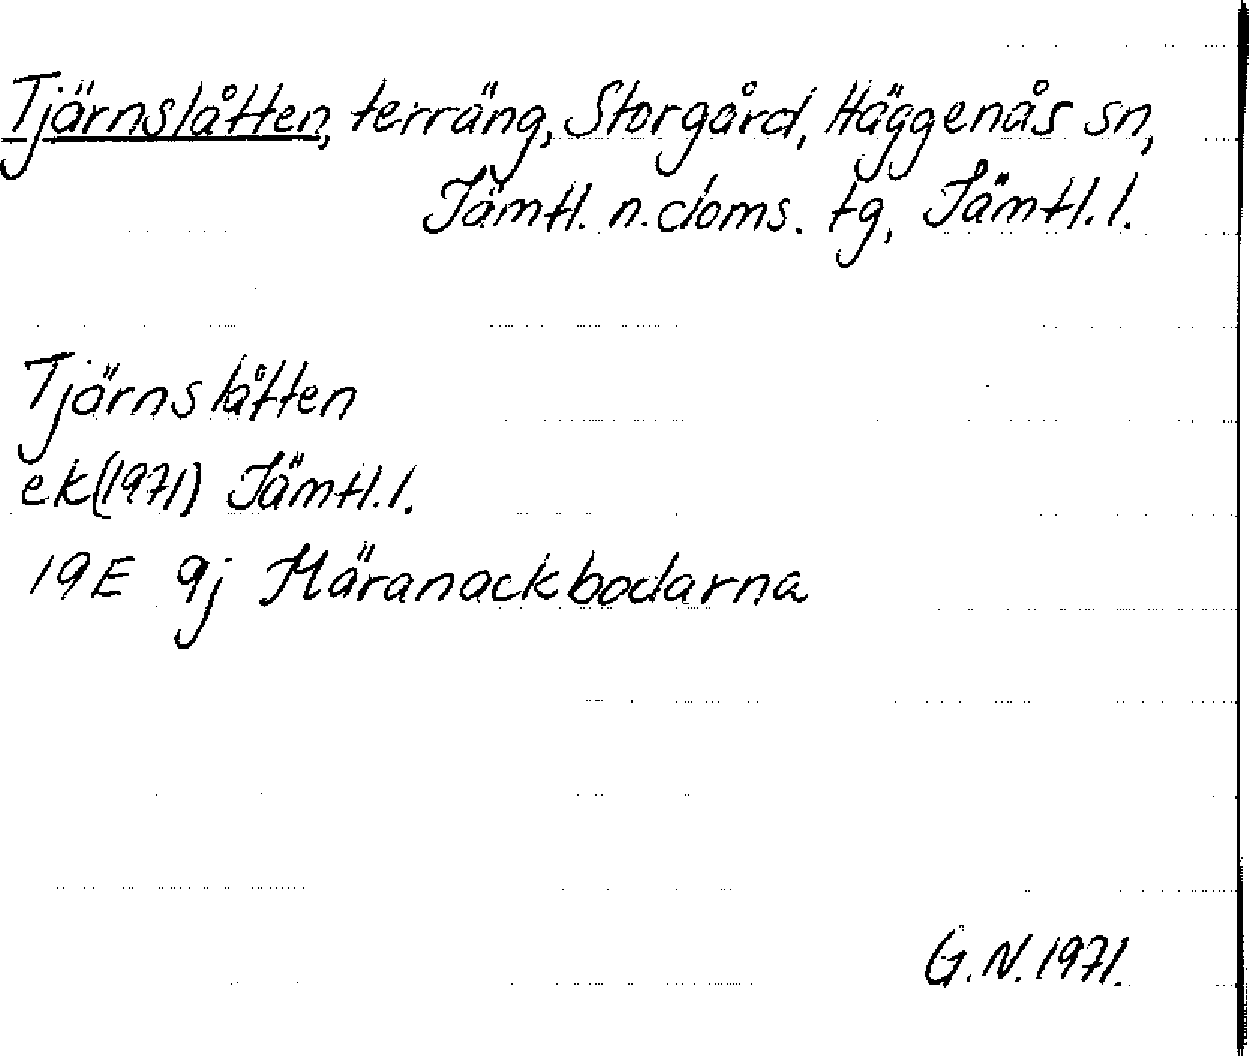 Tjärnslåtten, terräng, Storgård, Häggenås sn,
Jämtl. n. doms. tg, Jämtl. l.
Tjärnslåtten
ek(1971) Jämtl. l.
19E 9j Märanackbodarna
G. N. 1971.